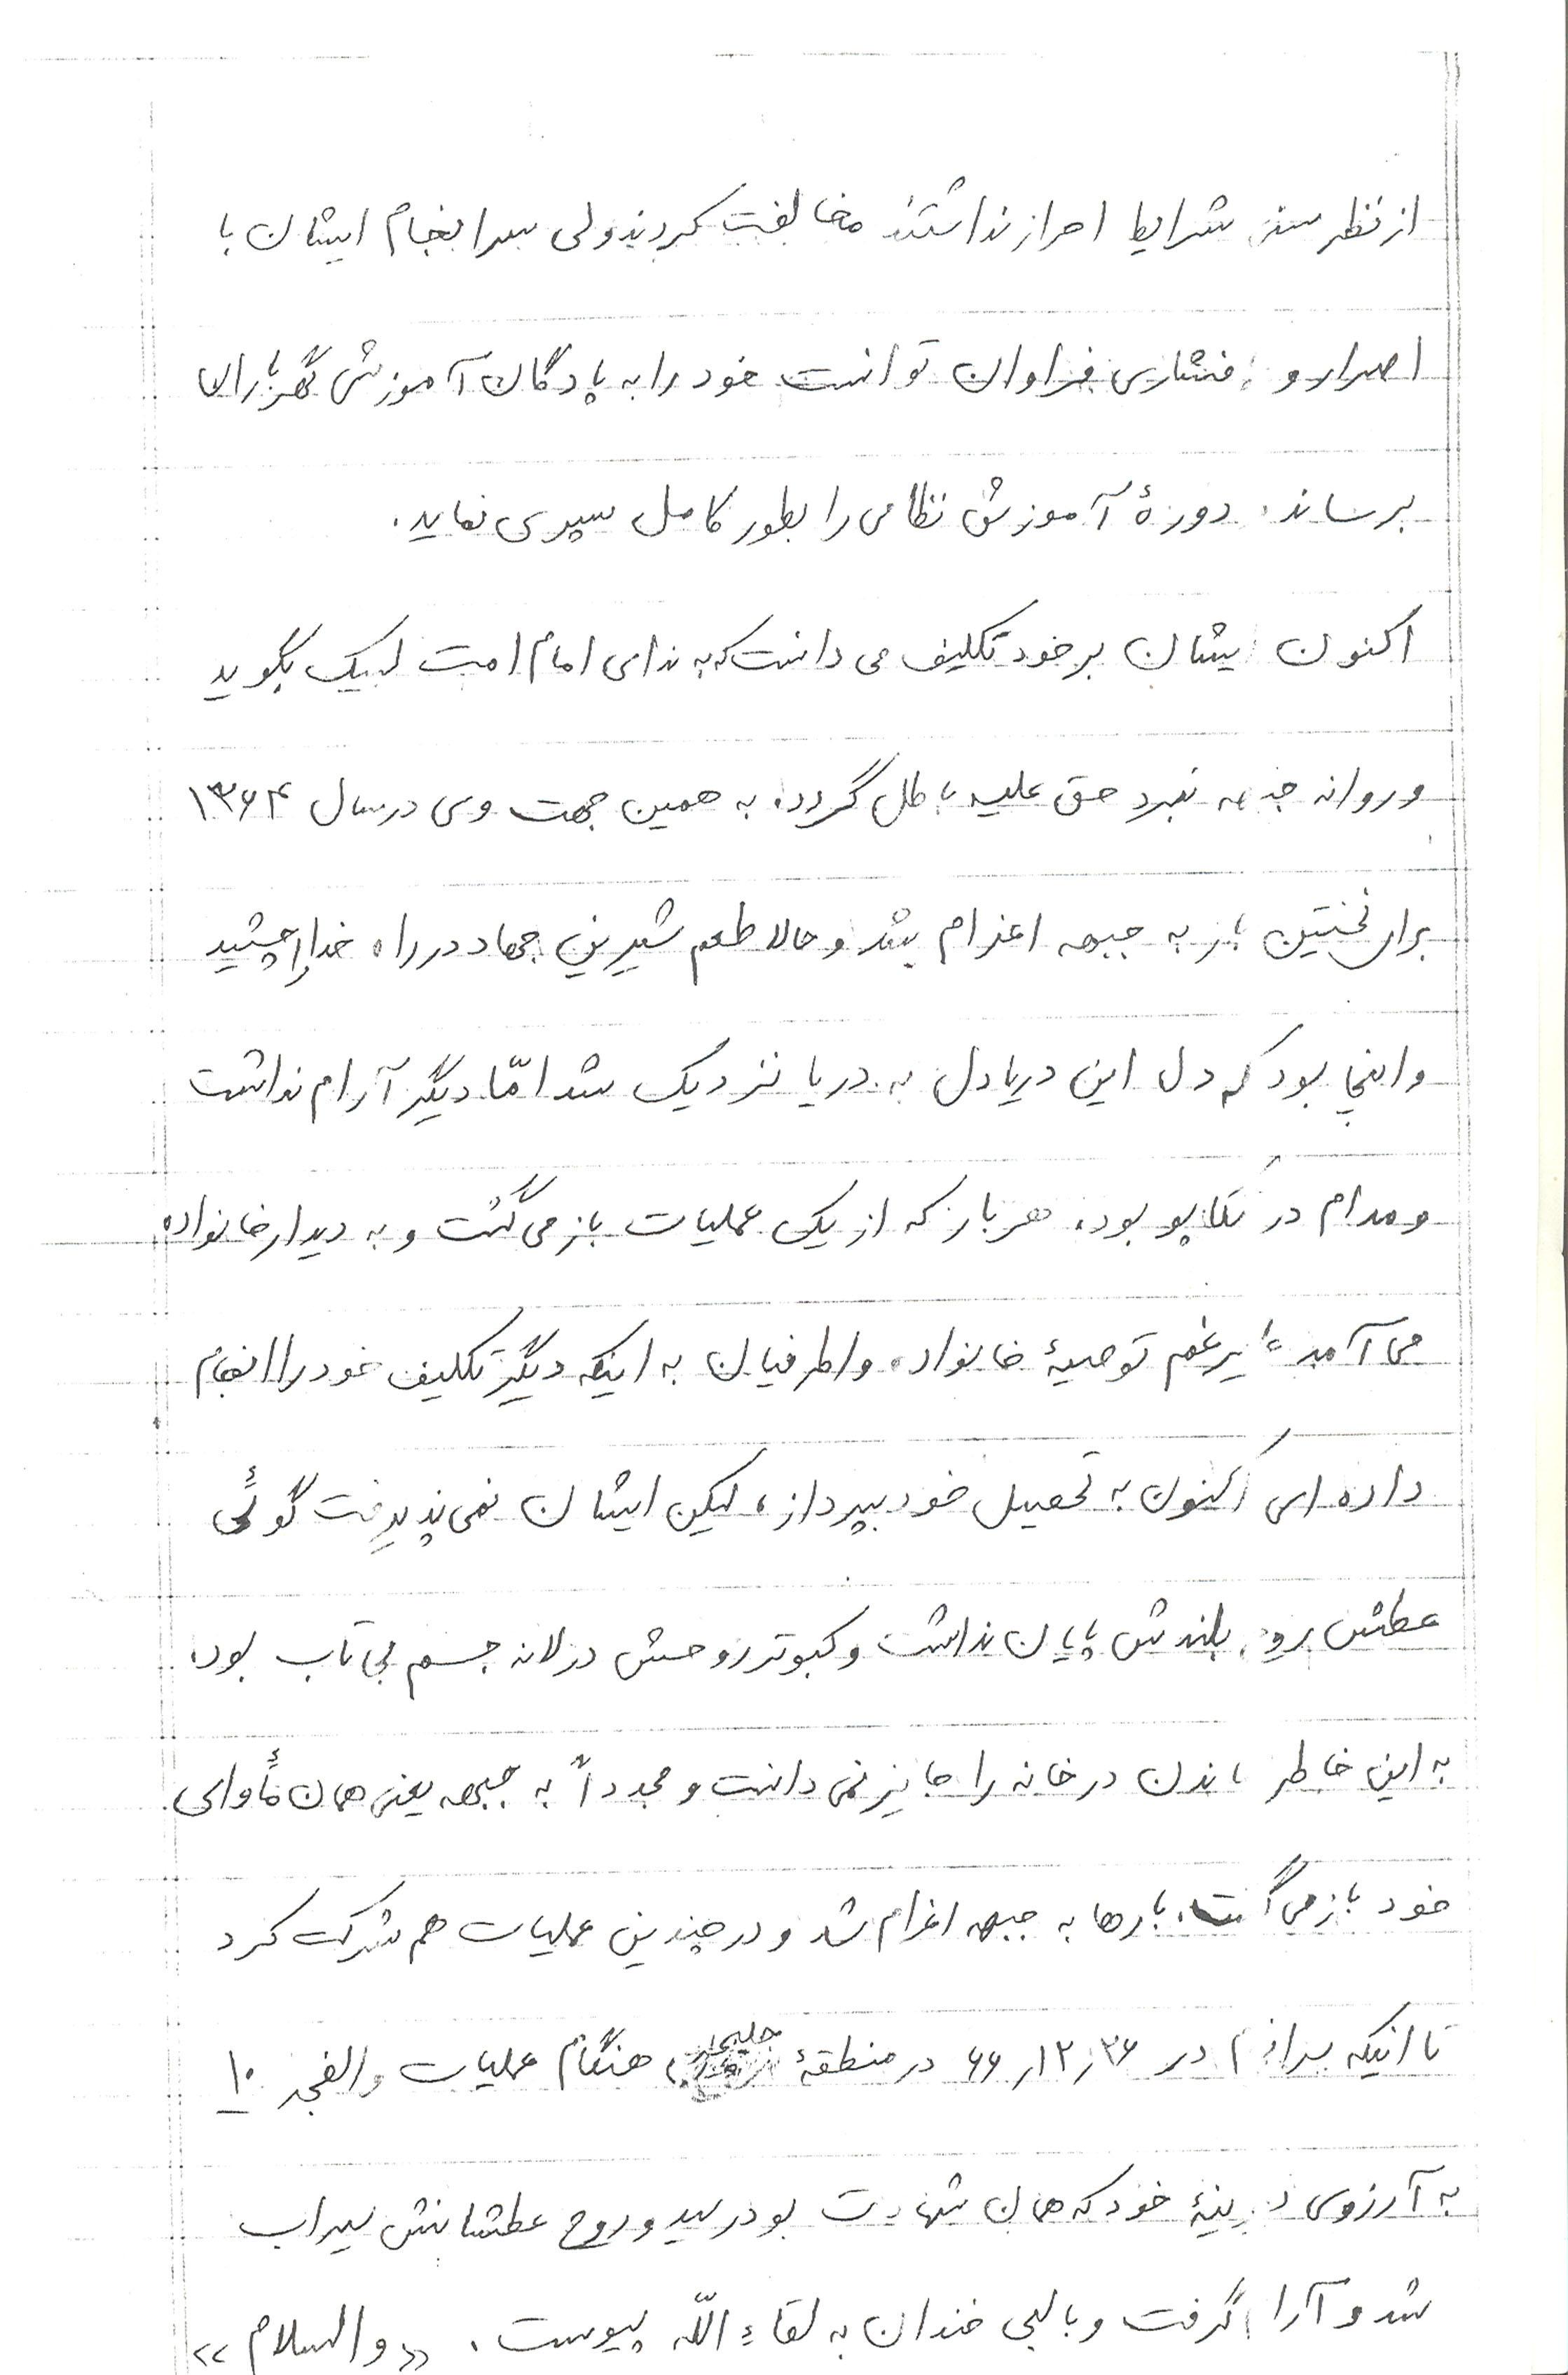 از نظر سنی شرایط احراز نداشتند مخالفت کردند ولی سرانجام ایشان با
اصرار و فشاری فراوان توانست خود را به پادگان آموزش گهرباران
برساند. دورهٔ آموزش نظامی را بطور کامل سپری نماید.
اکنون ایشان بر خود تکلیف می دانست که به ندای امام امت لبیک بگوید
و روانه جبهه نبرد حق علیه باطل گردد. به همین جهت وی در سال ۱۳۶۴
برای نخستین بار به جبهه اعزام شد و حالا طعم شیرینی جهاد در راه خدا را چشید
و اینجا بود که دل این دریادل به دریا نزدیک شد امّا دیگر آرام نداشت
و مدام در تکاپو بود. هر بار که از یک عملیات باز می گشت و به دیدار خانواده
می آمد علیرغم توصیهٔ خانواده و اطرافیان به اینکه دیگر تکلیف خود را انجام
داده ای اکنون به تحصیل خود بپرداز، لیکن ایشان نمی پذیرفت گوئی
عطش روح بلندش پایان نداشت و کبوتر روحش در لانه جسم بی تاب بود.
به این خاطر ماندن در خانه را جایز نمی دانست و مجدداً به جبهه یعنی همان مأوای
خود باز می گشت. بارها به جبهه اعزام شد و در چندین عملیات هم شرکت کرد
تا اینکه سرانجام در ۲۶ر۱۲ر۶۶ در منطقهٔ حلبچه هنگام عملیات والفجر ۱۰
به آرزوی دیرینهٔ خود که همان شهادت بود رسید و روح عطشانش سیراب
شد و آرام گرفت و با لبی خندان به لقاء اللّه پیوست. «والسلام»